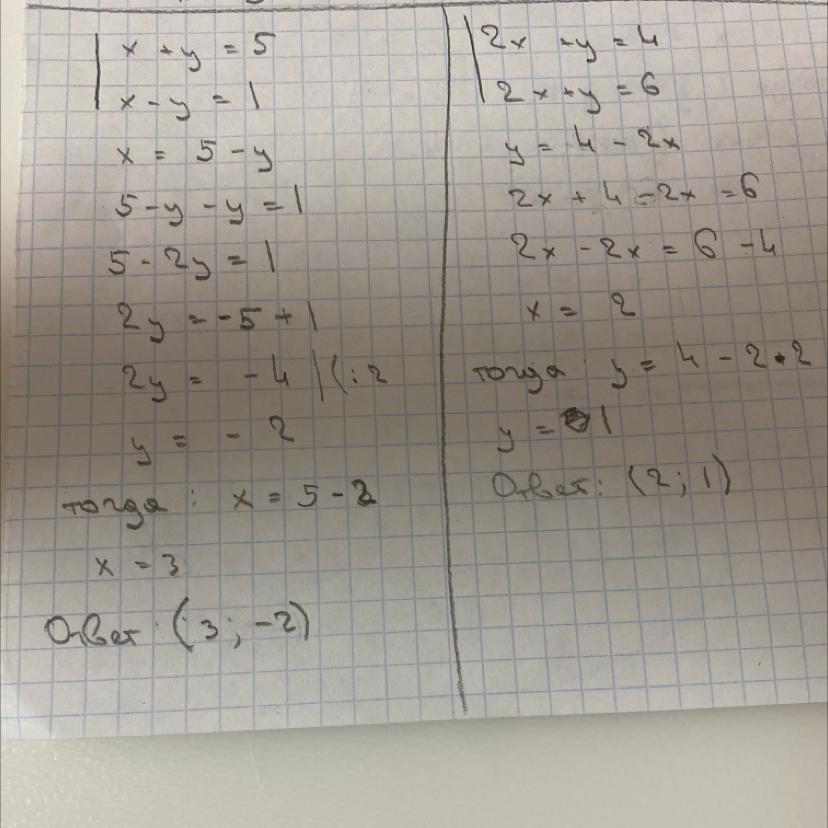 x + y = 5
x - y = 1
x = 5 - y
5 - y - y = 1
5 - 2y = 1
2y = -5 + 1
2y = -4 |(: 2
y = -2
тогда: x = 5 - 2
x = 3
Ответ: (3; -2)
2x + y = 4
2x + y = 6
y = 4 - 2x
2x + 4 - 2x = 6
2x - 2x = 6 - 4
x = 2
тогда: y = 4 - 2 • 2
y = 1
Ответ: (2; 1)